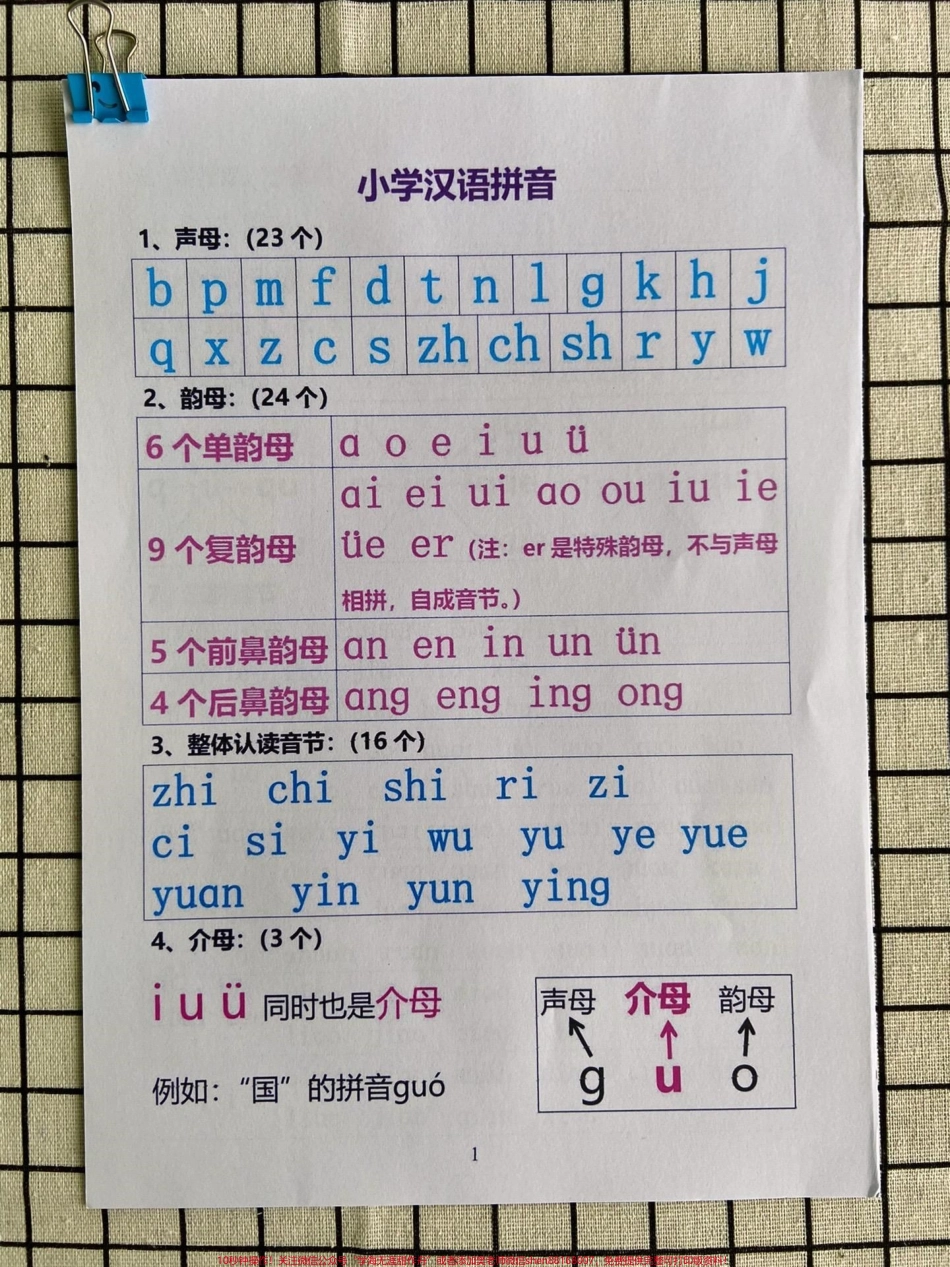 小学汉语拼音
1、声母：(23 个)
b p m f d t n l g k h j
q x z c s zh ch sh r y w
2、韵母：(24 个)
6 个单韵母 ɑ o e i u ü
9 个复韵母 ɑi ei ui ɑo ou iu ie
üe er (注：er 是特殊韵母，不与声母
相拼，自成音节。)
5 个前鼻韵母 ɑn en in un ün
4 个后鼻韵母 ɑng eng ing ong
3、整体认读音节：(16 个)
zhi chi shi ri zi
ci si yi wu yu ye yue
yuɑn yin yun ying
4、介母：(3 个)
i u ü 同时也是介母
例如：“国”的拼音guó
声母 介母 韵母
g u o
1